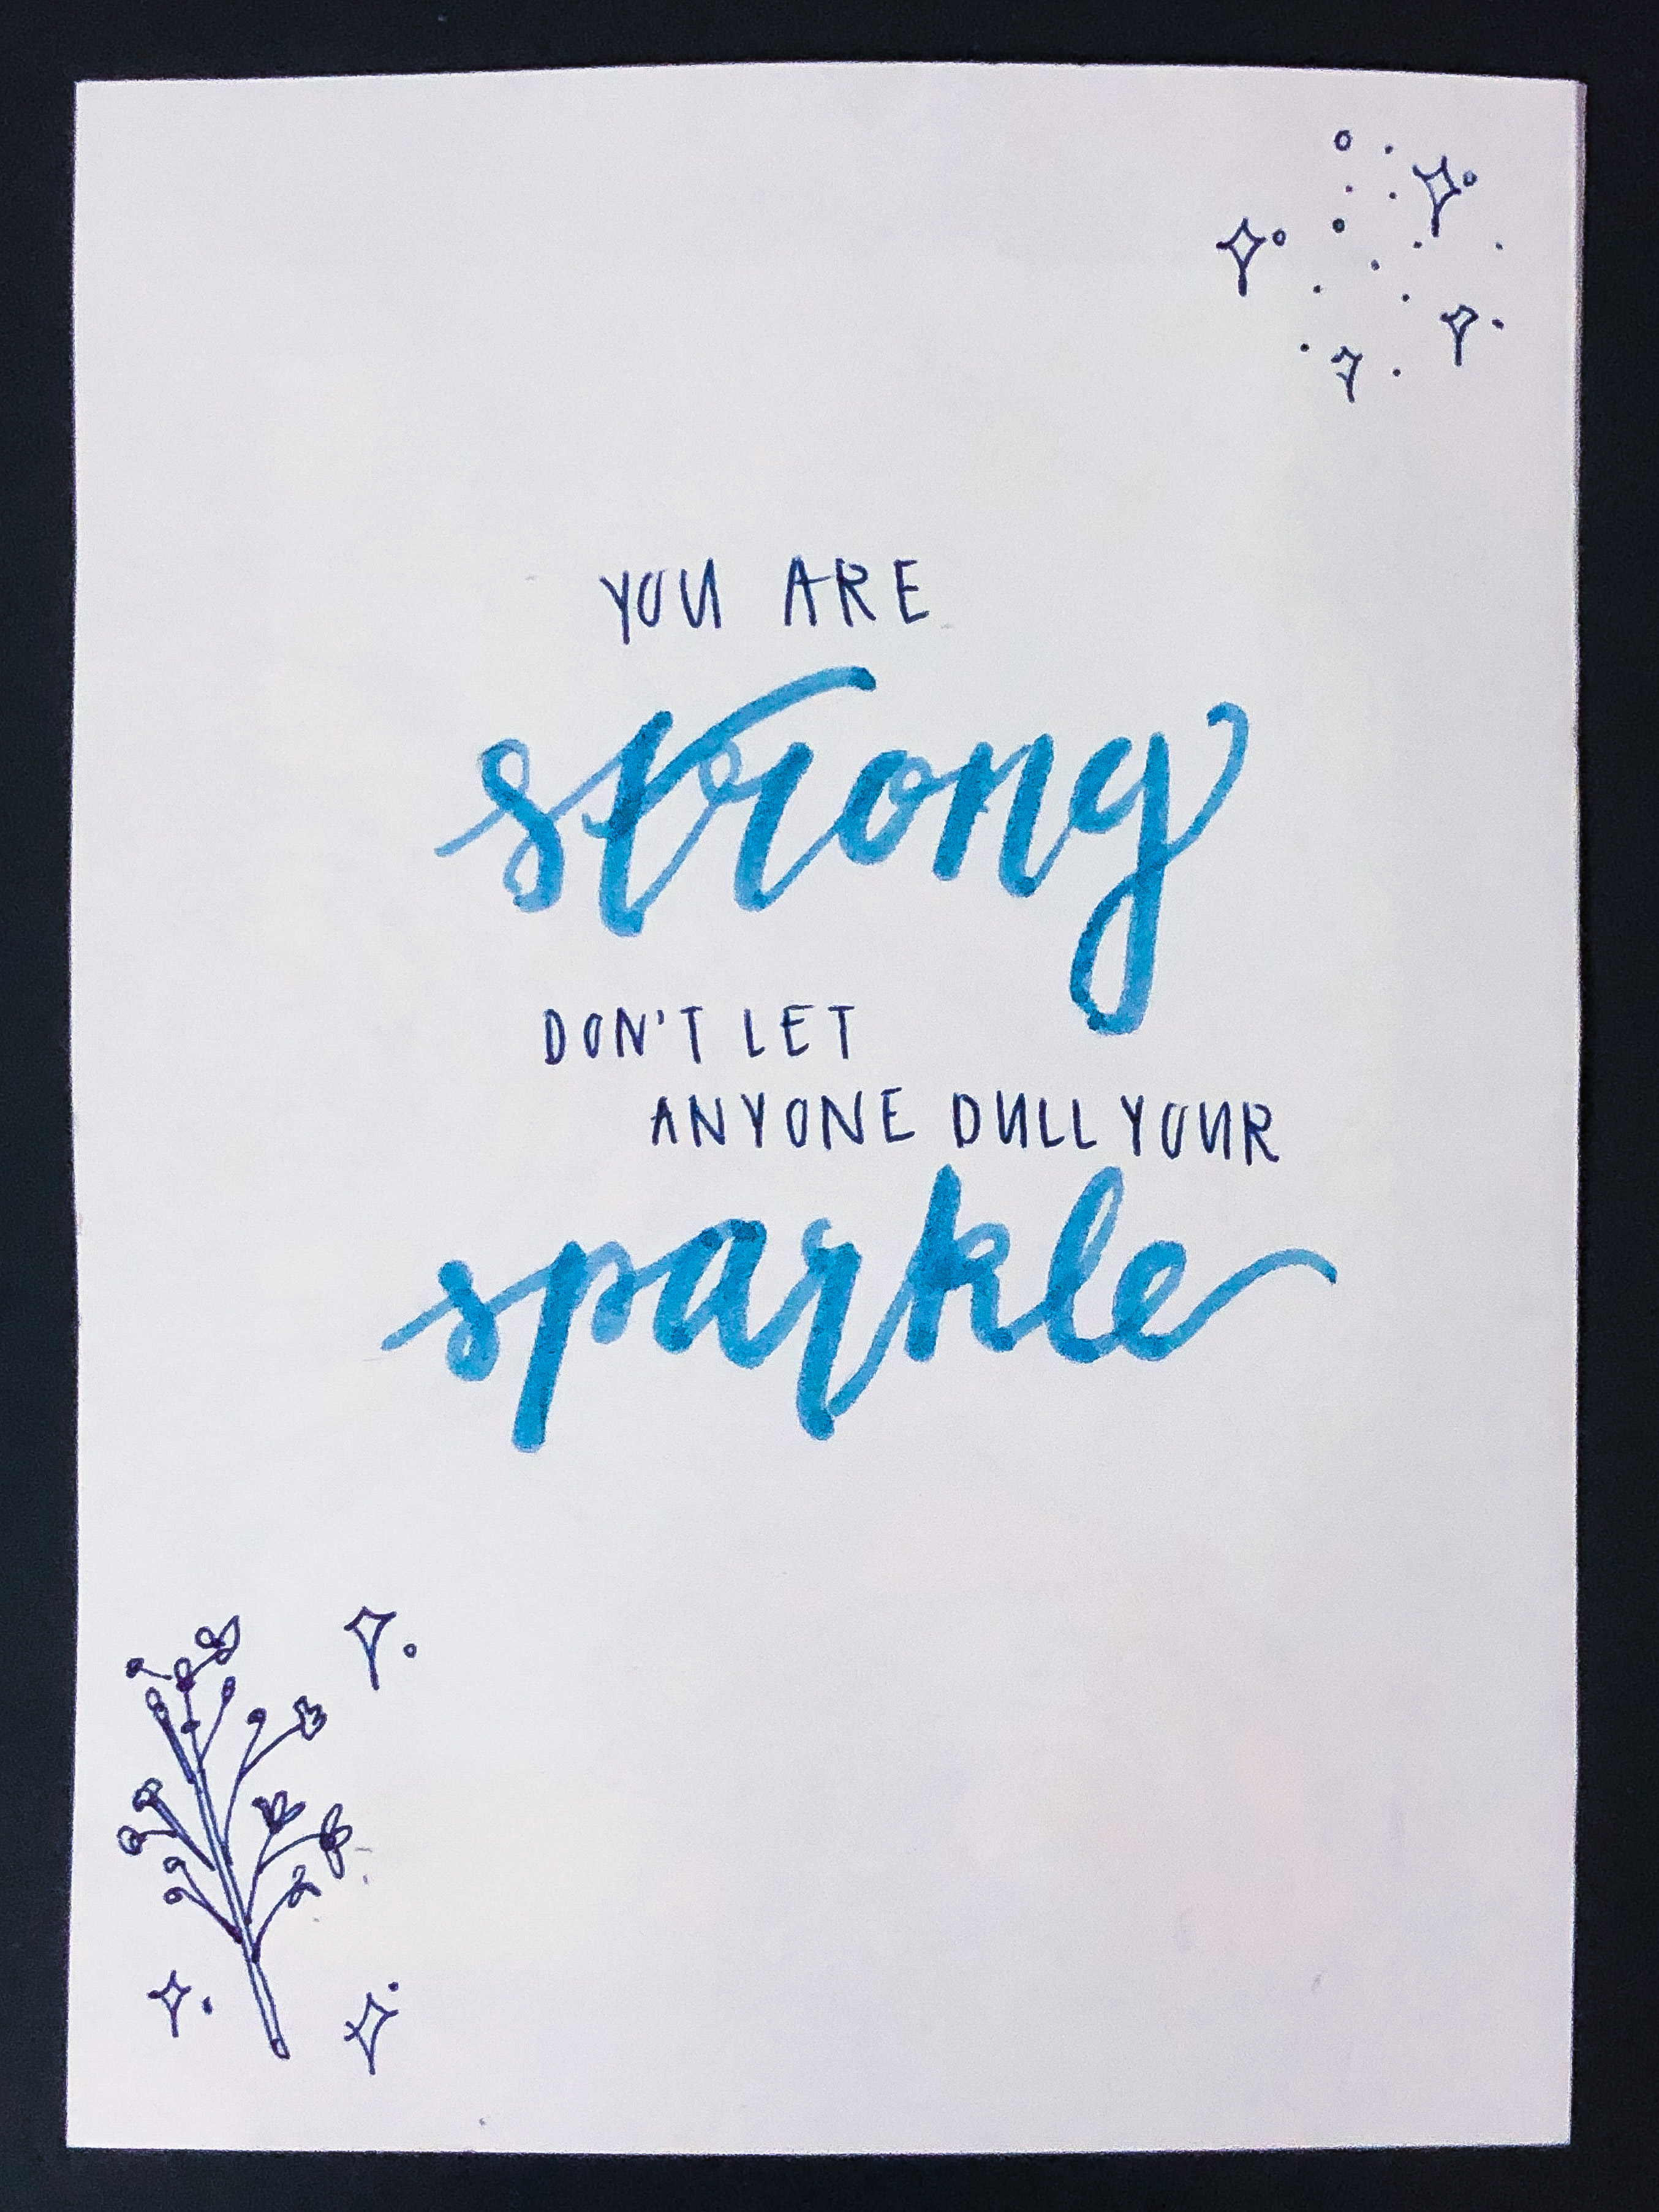 YOU ARE
strong
DON'T LET
ANYONE DULL YOUR
sparkle